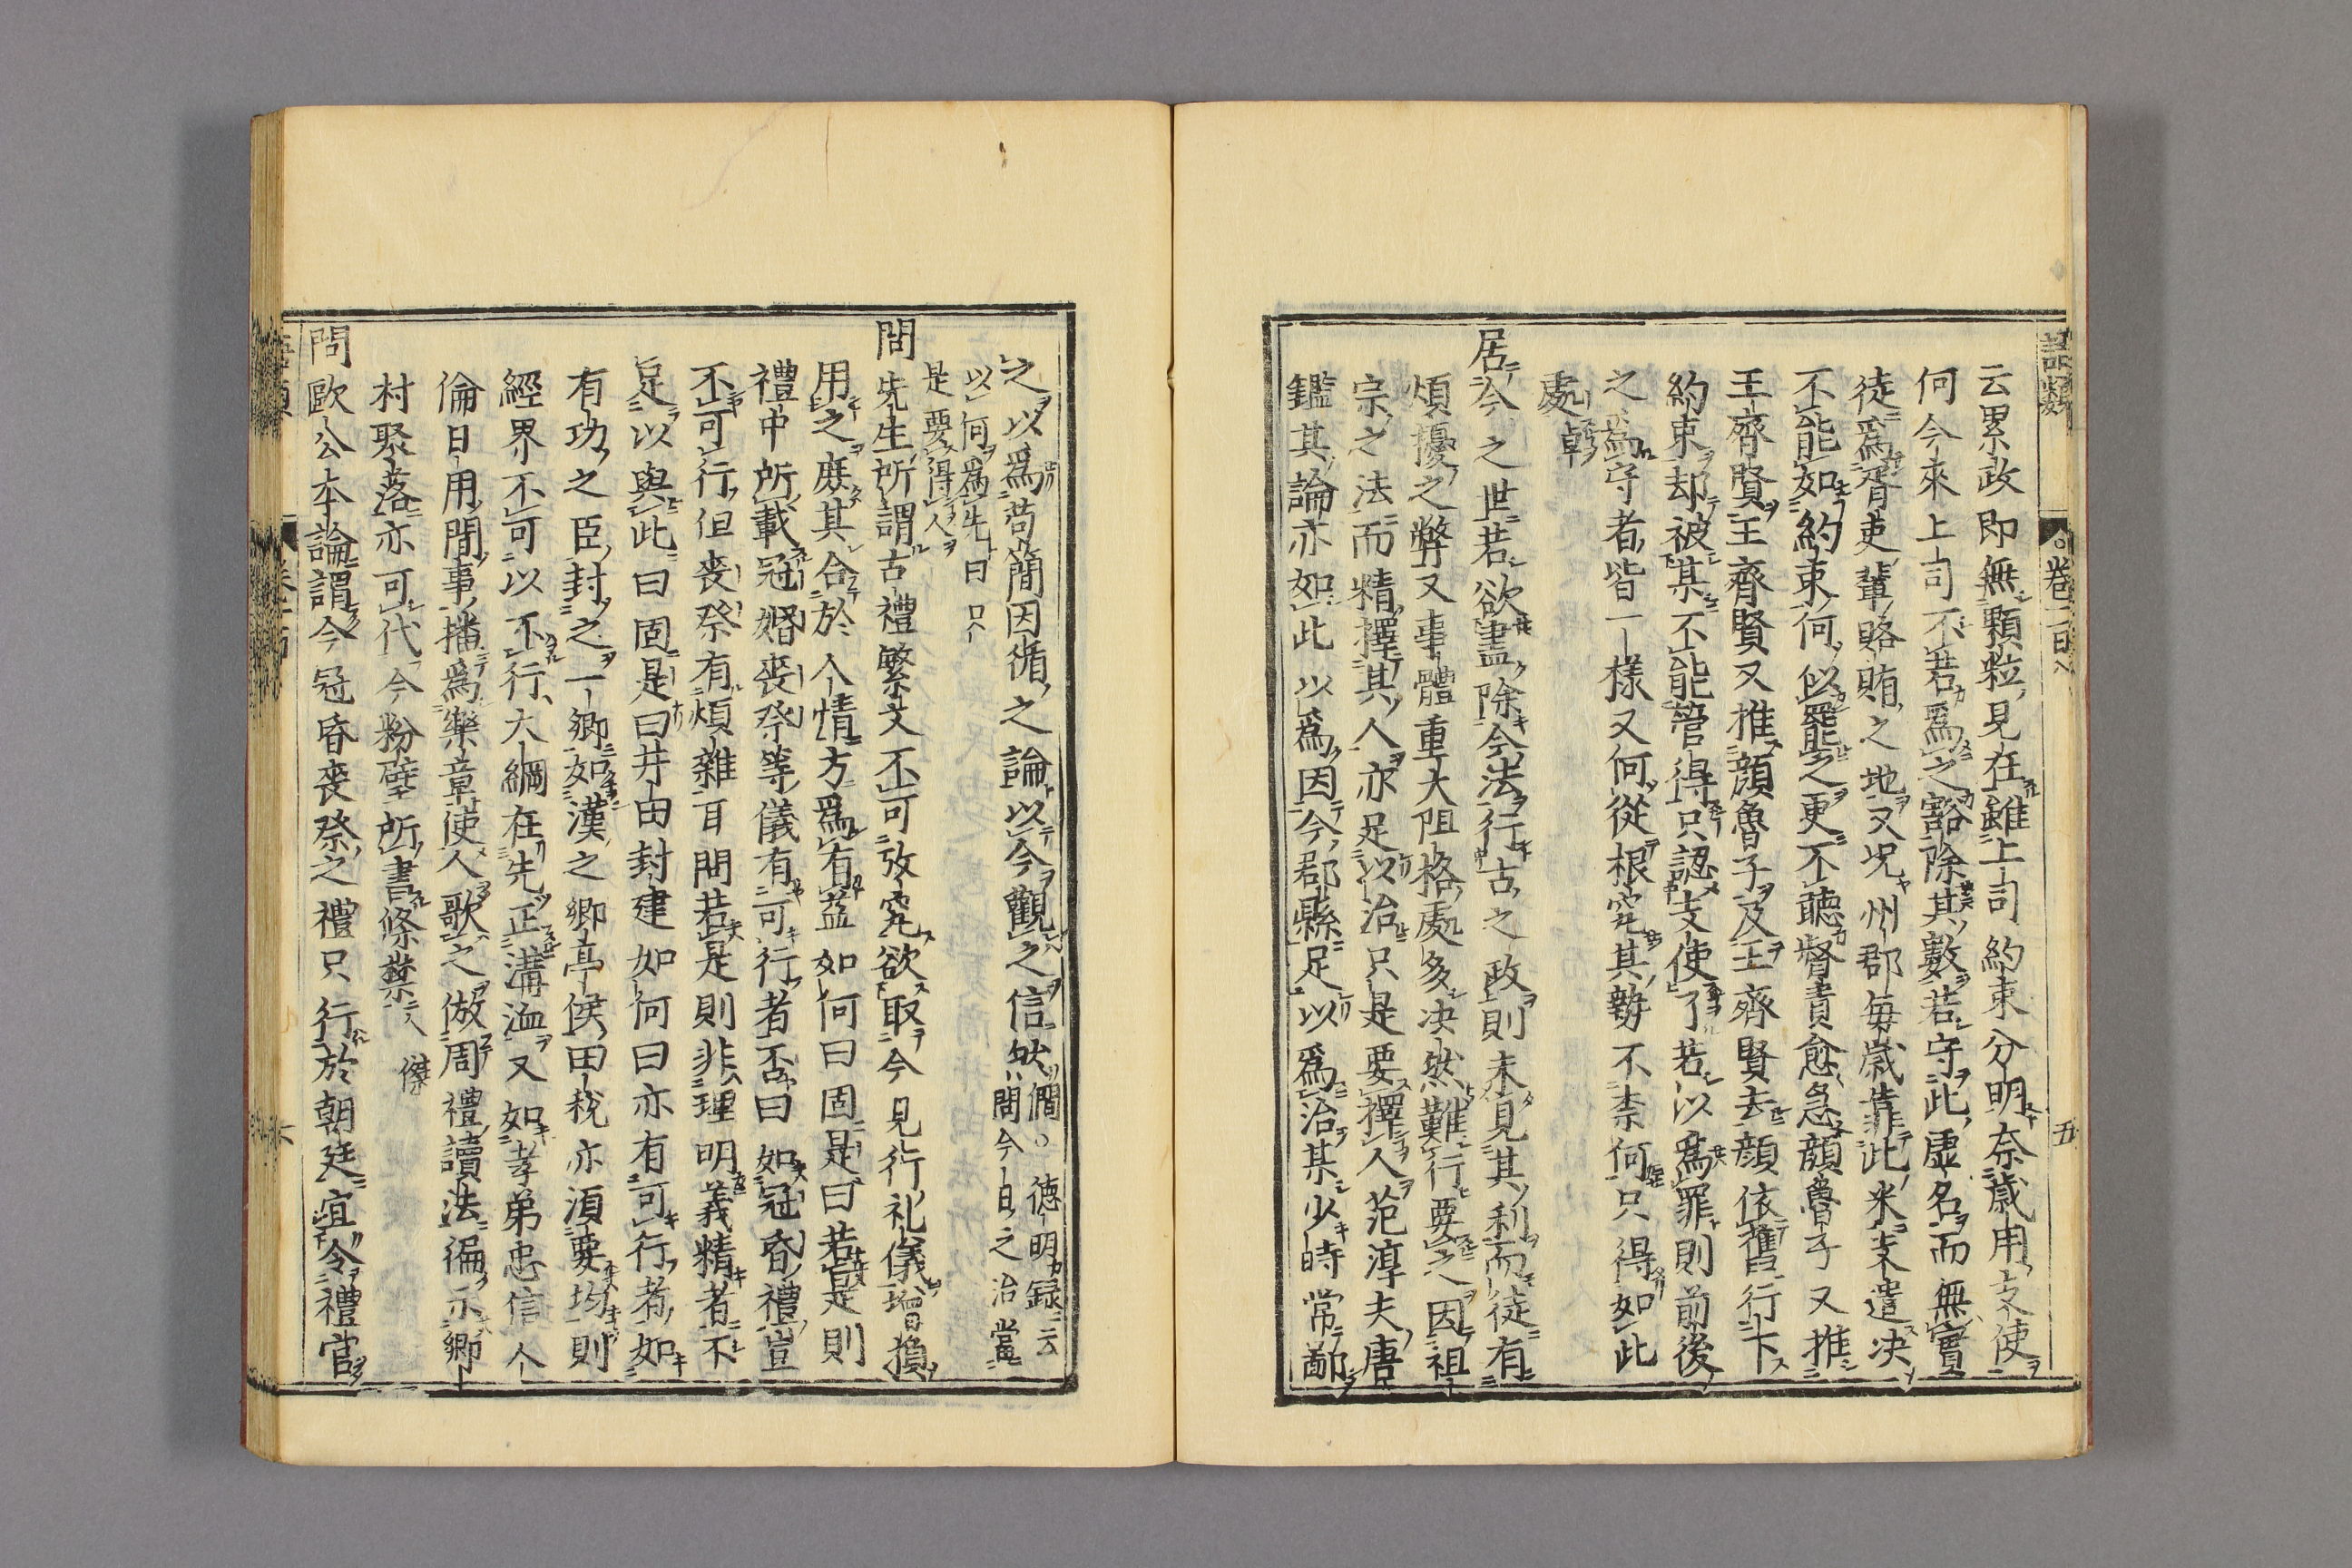 語類 卷一百八 五
云累政即無顆粒見在雖上司約束分明奈歲用支使
何今來上司不若爲之豁除其數若守此虛名而無實
徒爲胥吏輩賂賄之地又况州郡每歲靠此米支遣决
不能如約束何似罷之更不聽督責愈急顏魯子又推
王齊賢王齊賢又推顏魯子及王齊賢去顏依舊行下
約束却被某不能管得只認支使了若以爲罪則前後
之爲守者皆一樣又何從根究其勢不柰何只得如此
處卓
居今之世若欲盡除今法行古之政則未見其利而徒有
煩擾之弊又事體重大阻格處多决然難行要之因祖
宗之法而精擇其人亦足以治只是要擇人范淳夫唐
鑑其論亦如此以爲因今郡縣足以爲治某少時常鄙
之以爲苟簡因循之論以今觀之信然僩○德明録云
問今日之治當
以何爲先曰只
是要得人
問先生所謂古禮繁文不可攷究欲取今見行礼儀增損
用之庶其合於人情方爲有益如何曰固是曰若是則
禮中所載冠婚喪祭等儀有可行者否曰如冠昏禮豈
不可行但喪祭有煩雜耳問若是則非理明義精者不
足以與此曰固是曰井田封建如何曰亦有可行者如
有功之臣封之一鄉如漢之鄉亭侯田稅亦須要均則
經界不可以不行大綱在先正溝洫又如孝弟忠信人
倫日用間事播爲樂章使人歌之倣周禮讀法徧示鄉
村聚落亦可代今粉壁所書條禁人傑
問歐公本論謂今冠昏喪祭之禮只行於朝廷宜令禮官